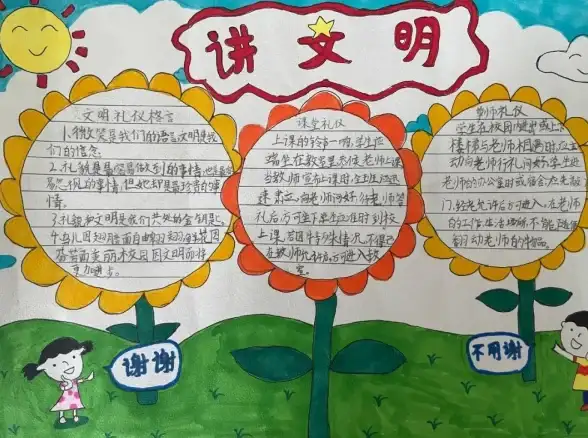 讲文明
文明礼仪格言
1.微笑是我们的语言文明是我
们的信念
2.礼貌是最容易做到的事情,也是最容
易忽视的事情,但她却是最珍贵的事
情。
3.礼貌和文明是我们共处的金钥匙
4.鸟儿因翅膀而自由翱翔,鲜花因
芬芳而美丽,校园因文明而将
更加进步。
课堂礼仪
上课的铃声一响,学生应
端坐在教室里,恭候老师上课
当教师宣布上课时,全班应迅速
肃立,向老师问好,待老师答
礼后方可坐下,学生应准时到校
上课,若因特殊情况,不得已
在教师允许后,方可进入教
室。
教师礼仪
学生在校园内进出或上下
楼梯与老师相遇时,应主
动向老师行礼问好,学生进
老师的办公室时或宿舍应先敲
门,经老师允许后方可进入,在老师
的工作,生活场所,不能随便
翻动老师的物品。
谢谢
不用谢